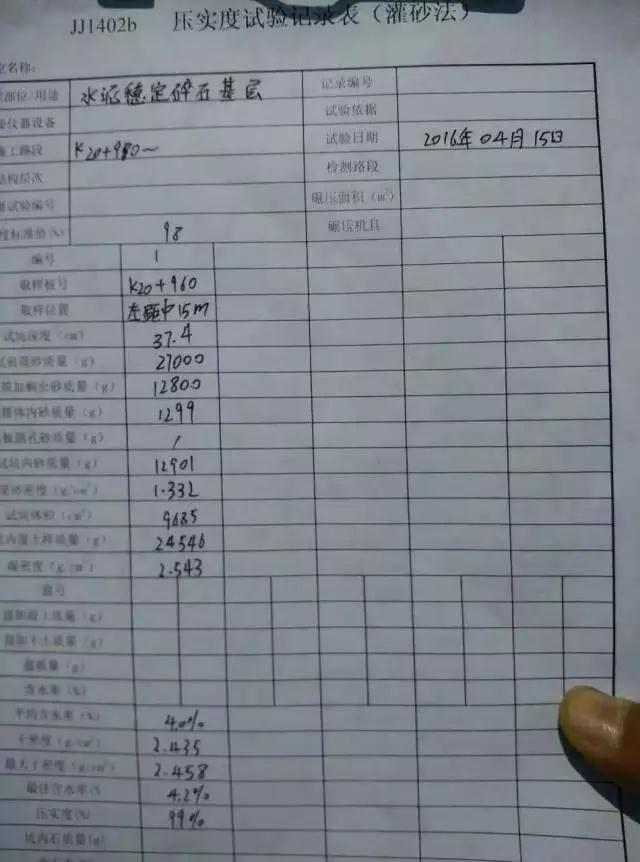 JJ1402b 压实度试验记录表（灌砂法）
名称：
部位/用途 水泥稳定碎石基层 记录编号
仪器设备 试验依据
施工路段 K20+980~ 试验日期 2016年04月15日
结构层次 检测路段
试验编号 碾压面积（m²）
度标准值(%) 98 碾压机具
编号 1
取样桩号 K20+960
取样位置 左距中15m
试坑深度（cm） 37.4
砂质量（g） 27000
剩余砂质量（g） 12800
锥体内砂质量（g） 1299
圆孔砂质量（g） /
试坑内砂质量（g） 12901
密度（g/cm³） 1.332
试坑体积（cm³） 9685
质量（g） 24546
湿密度（g/cm³） 2.543
盒号
质量（g）
干土质量（g）
盒质量（g）
含水率（%）
平均含水率（%） 4.0%
干密度（g/cm³） 2.435
最大干密度（g/cm³） 2.458
最佳含水率(% 4.2%
压实度(%) 99%
坑内石质量(g)